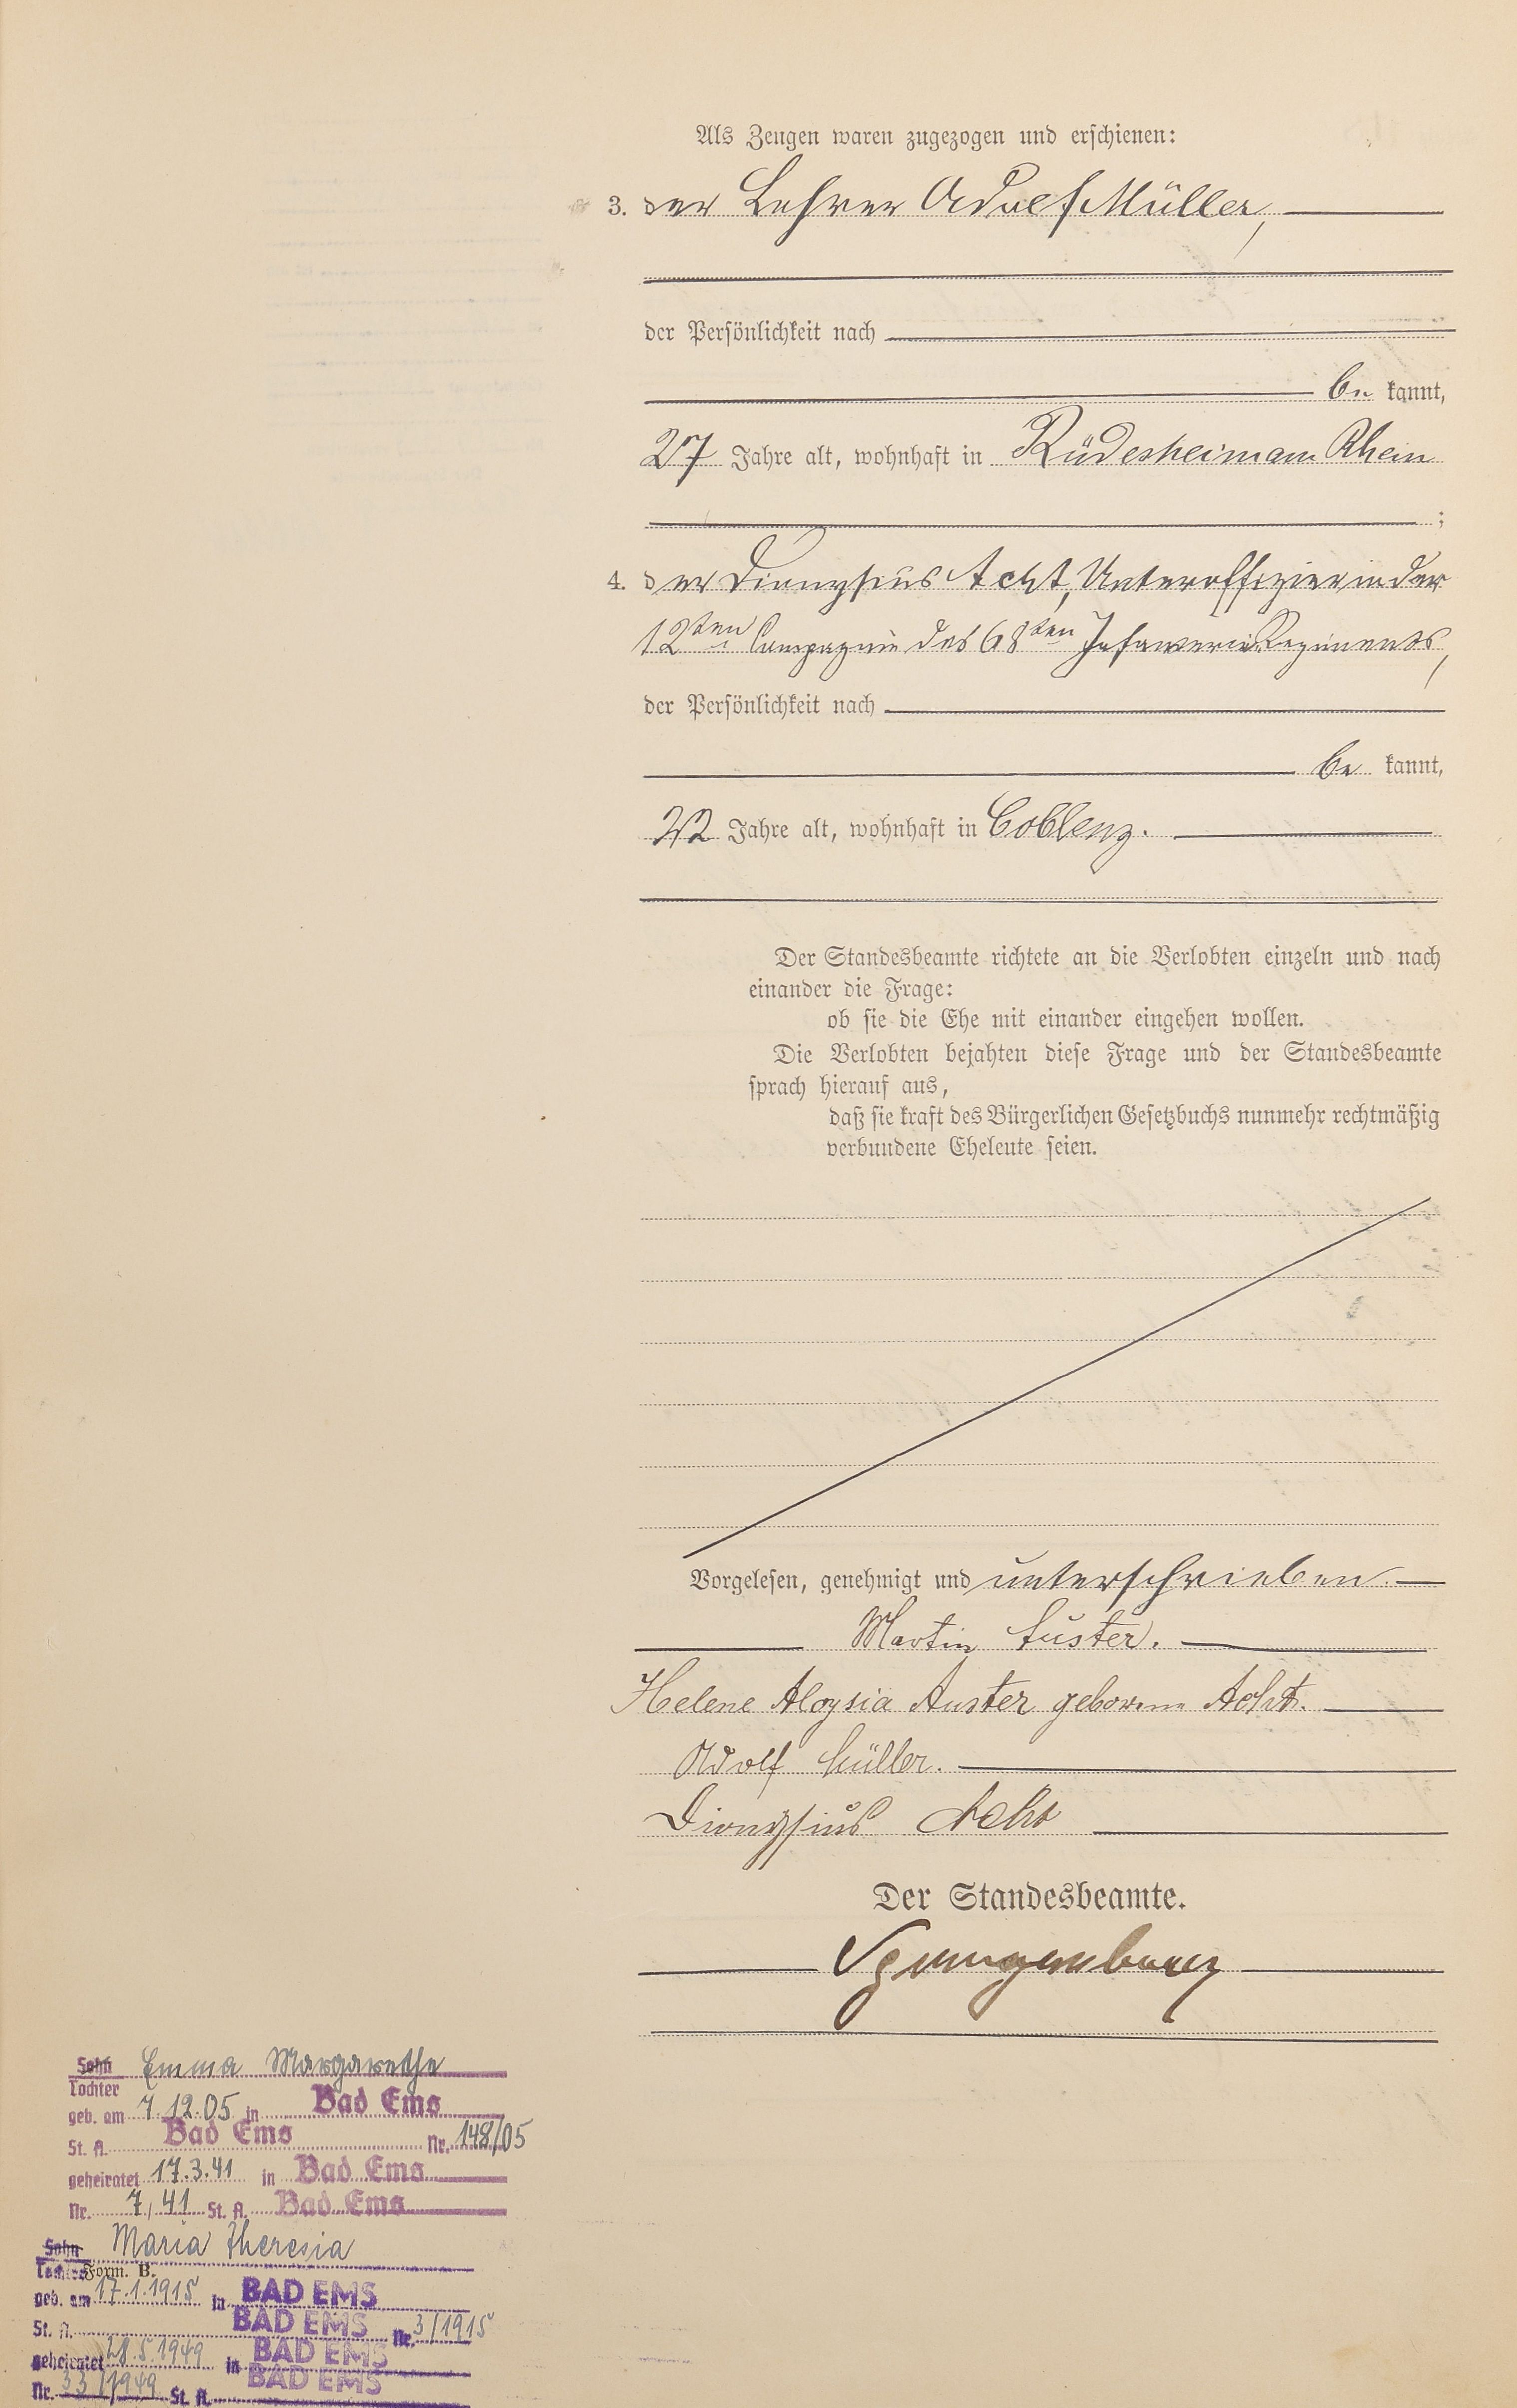 Als Zeugen waren zugezogen und erschienen:
3. der Lehrer Adolf Müller,
der Persönlichkeit nach
be kannt,
27 Jahre alt, wohnhaft in Rüdesheim am Rhein
;
4. der Dionysius Acht, Unteroffizier in der
12ten Compagnie des 68ten Infanterie Regiments,
der Persönlichkeit nach
be kannt,
22 Jahre alt, wohnhaft in Coblenz.
Der Standesbeamte richtete an die Verlobten einzeln und nach
einander die Frage:
ob sie die Ehe mit einander eingehen wollen.
Die Verlobten bejahten diese Frage und der Standesbeamte
sprach hierauf aus,
daß sie kraft des Bürgerlichen Gesetzbuchs nunmehr rechtmäßig
verbundene Eheleute seien.
Vorgelesen, genehmigt und unterschrieben
Martin Auster.
Helene Aloysia Auster geborene Acht.
Adolf Müller.
Dionysius Acht
Der Standesbeamte.
Sohn Emma Margarethe
Tochter
geb. am 7.12.05 in Bad Ems
St. A. Bad Ems Nr. 148/05
geheiratet 17.3.41 in Bad Ems
Nr. 7/41 St. A. Bad Ems
Sohn Maria Theresia
Tochter Form. B.
geb. am 17.1.1915 in BAD EMS
St. A. BAD EMS Nr. 3/1915
geheiratet 28.5.1949 in BAD EMS
Nr. 33/1949 St. A. BAD EMS